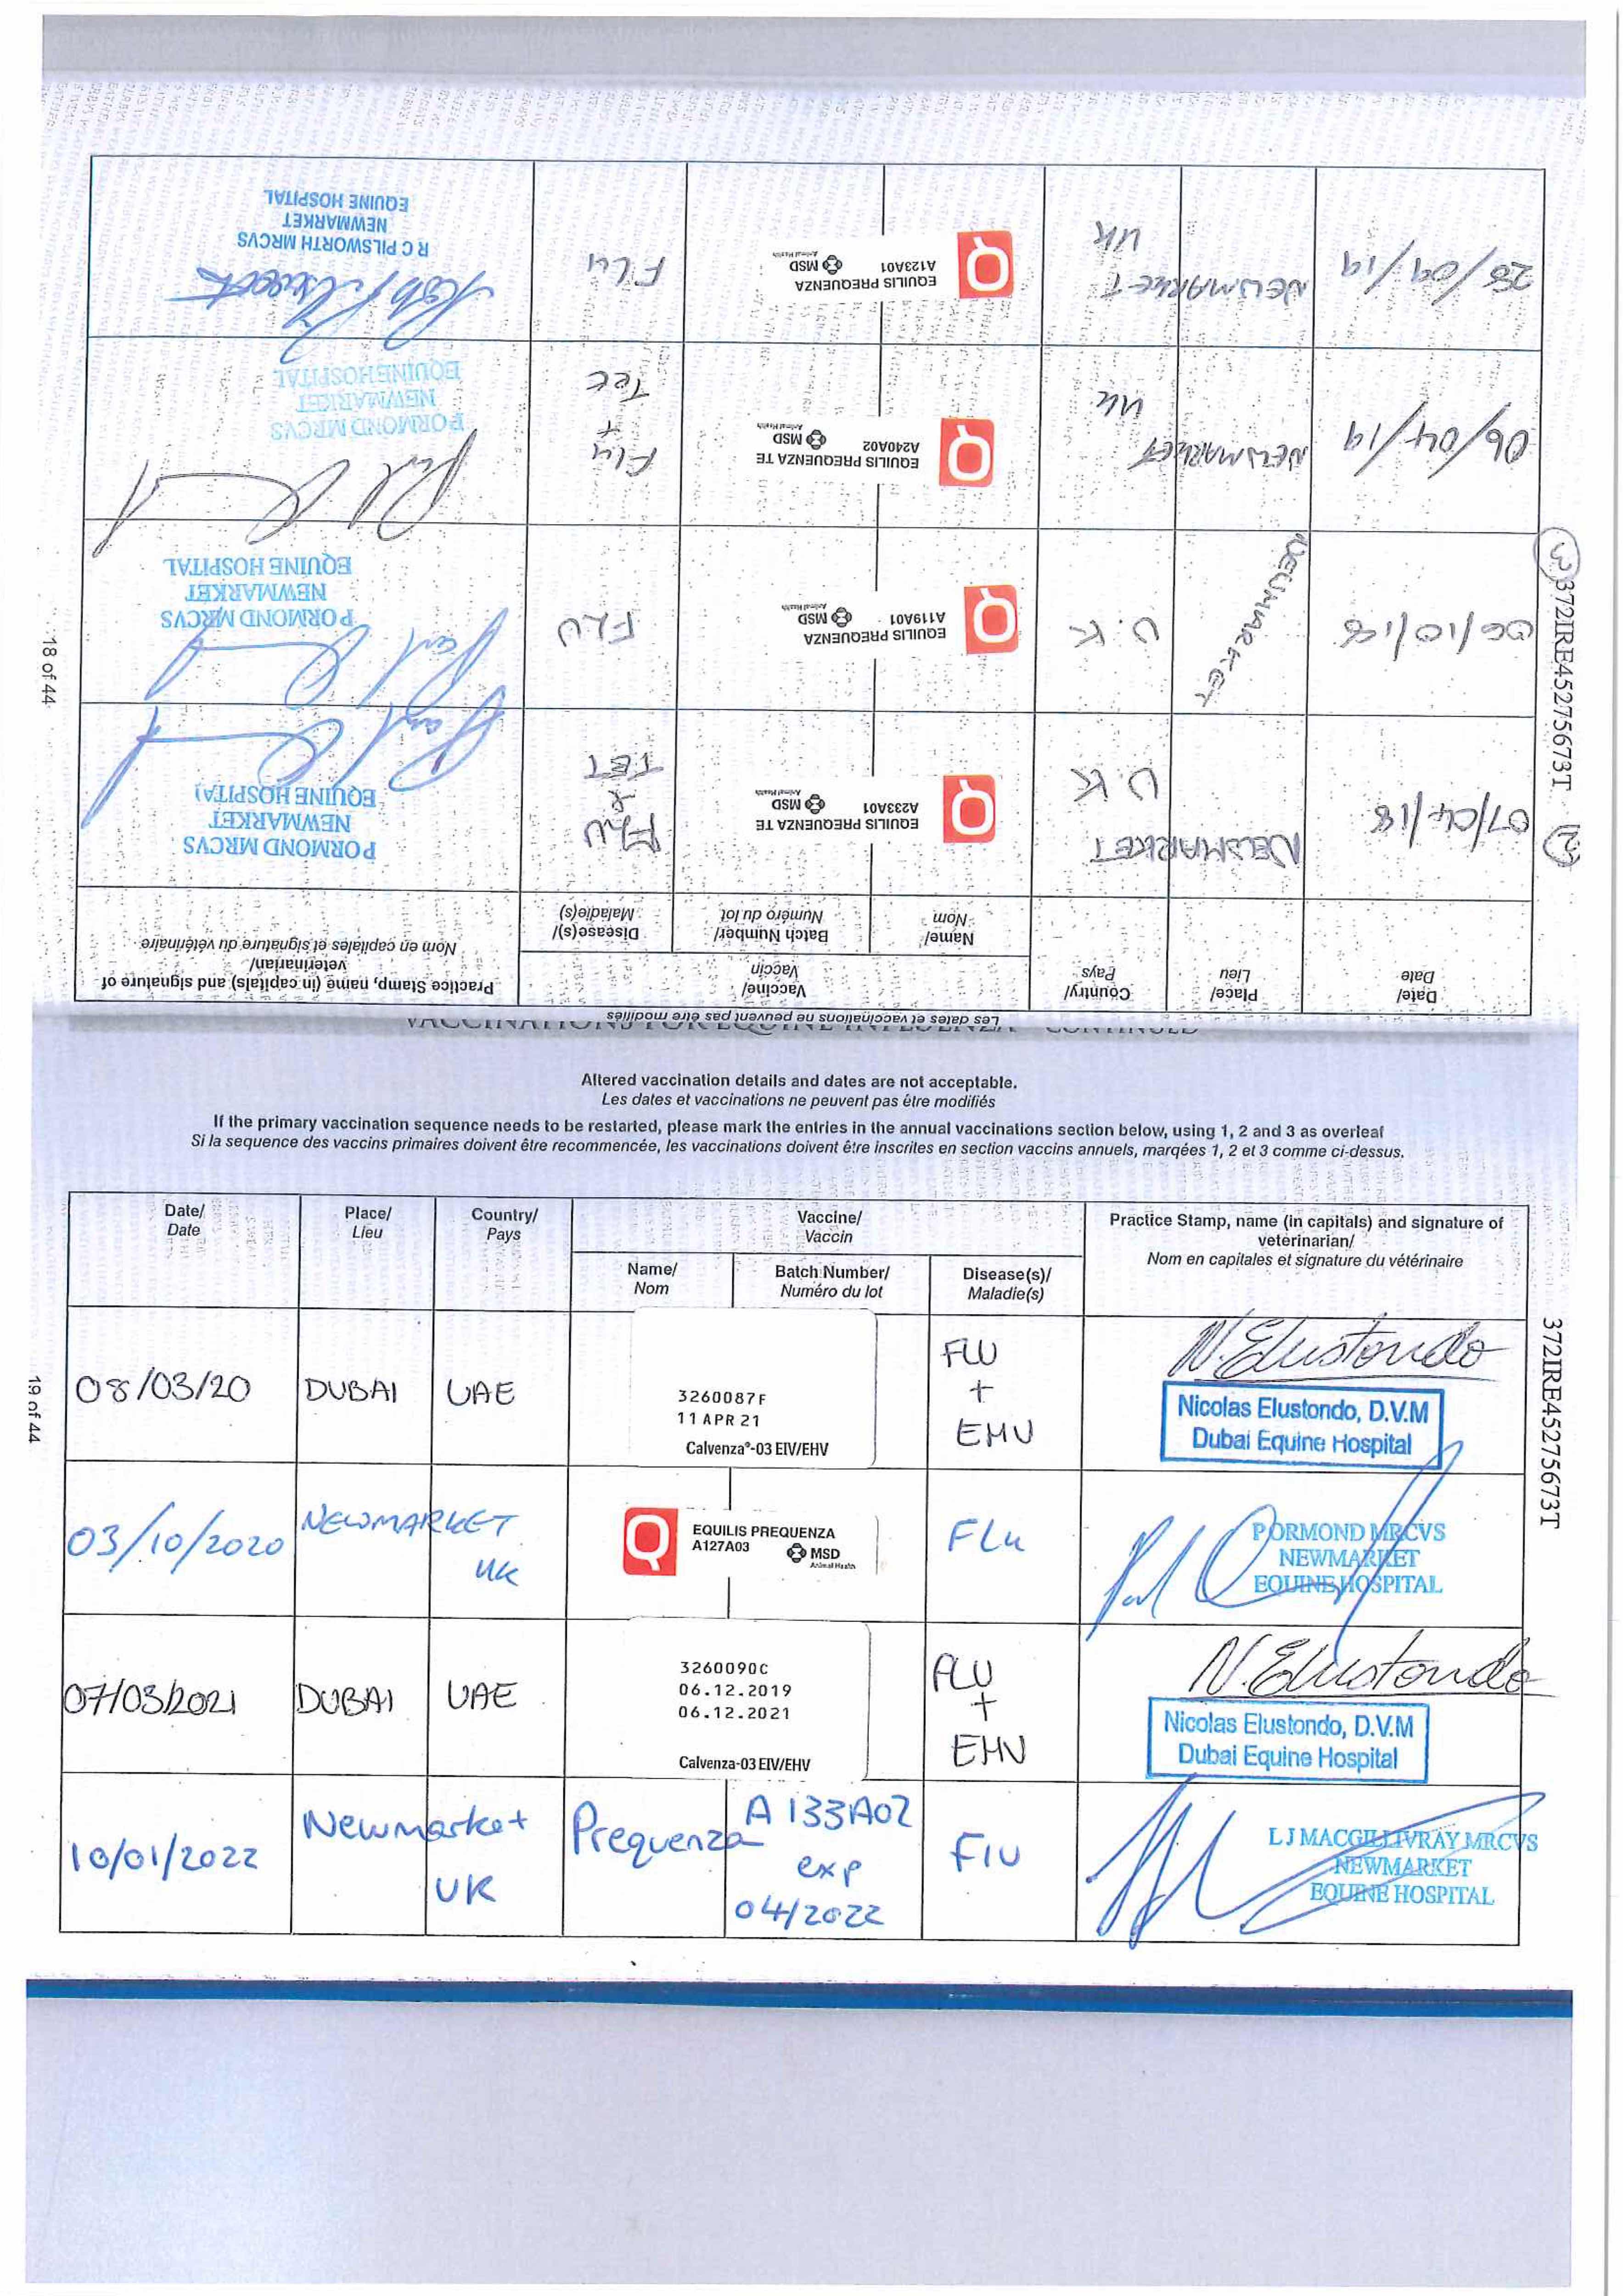 Les dates et vaccinations ne peuvent pas être modifiés
Date/
Date
Place/
Lieu
Country/
Pays
Vaccine/
Vaccin
Name/
Nom
Batch Number/
Numéro du lot
Disease(s)/
Maladie(s)
Practice Stamp, name (in capitals) and signature of
veterinarian/
Nom en capitales et signature du vétérinaire
2
07/04/18
NEWMARKET
U.K
EQUILIS PREQUENZA TE
A233A01
MSD
Animal Health
FLU
&
TET
P ORMOND MRCVS
NEWMARKET
EQUINE HOSPITAL
3
06/10/18
NEWMARKET
U.K
EQUILIS PREQUENZA
A119A01
MSD
Animal Health
FLU
P ORMOND MRCVS
NEWMARKET
EQUINE HOSPITAL
06/04/19
NEWMARKET
UK
EQUILIS PREQUENZA TE
A240A02
MSD
Animal Health
Flu
+
Tet
P ORMOND MRCVS
NEWMARKET
EQUINE HOSPITAL
28/09/19
NEWMARKET
UK
EQUILIS PREQUENZA
A123A01
MSD
Animal Health
FLU
R C PILSWORTH MRCVS
NEWMARKET
EQUINE HOSPITAL
372IRE45275673T
18 of 44
VACCINATIONS FOR EQUINE INFLUENZA - CONTINUED
Altered vaccination details and dates are not acceptable.
Les dates et vaccinations ne peuvent pas être modifiés
If the primary vaccination sequence needs to be restarted, please mark the entries in the annual vaccinations section below, using 1, 2 and 3 as overleaf
Si la sequence des vaccins primaires doivent être recommencée, les vaccinations doivent être inscrites en section vaccins annuels, marqées 1, 2 et 3 comme ci-dessus.
Date/
Date
Place/
Lieu
Country/
Pays
Vaccine/
Vaccin
Name/
Nom
Batch Number/
Numéro du lot
Disease(s)/
Maladie(s)
Practice Stamp, name (in capitals) and signature of
veterinarian/
Nom en capitales et signature du vétérinaire
08/03/20
DUBAI
UAE
3260087F
11 APR 21
Calvenza®-03 EIV/EHV
FLU
+
EHV
N. Elustondo
Nicolas Elustondo, D.V.M
Dubai Equine Hospital
03/10/2020
NEWMARKET
UK
EQUILIS PREQUENZA
A127A03
MSD
Animal Health
FLu
P ORMOND MRCVS
NEWMARKET
EQUINE HOSPITAL
07/03/2021
DUBAI
UAE
3260090C
06.12.2019
06.12.2021
Calvenza-03 EIV/EHV
FLU
+
EHV
N. Elustondo
Nicolas Elustondo, D.V.M
Dubai Equine Hospital
10/01/2022
Newmarket
UK
Prequenza
A133A02
exp
04/2022
Flu
L J MACGILLIVRAY MRCVS
NEWMARKET
EQUINE HOSPITAL
372IRE45275673T
19 of 44